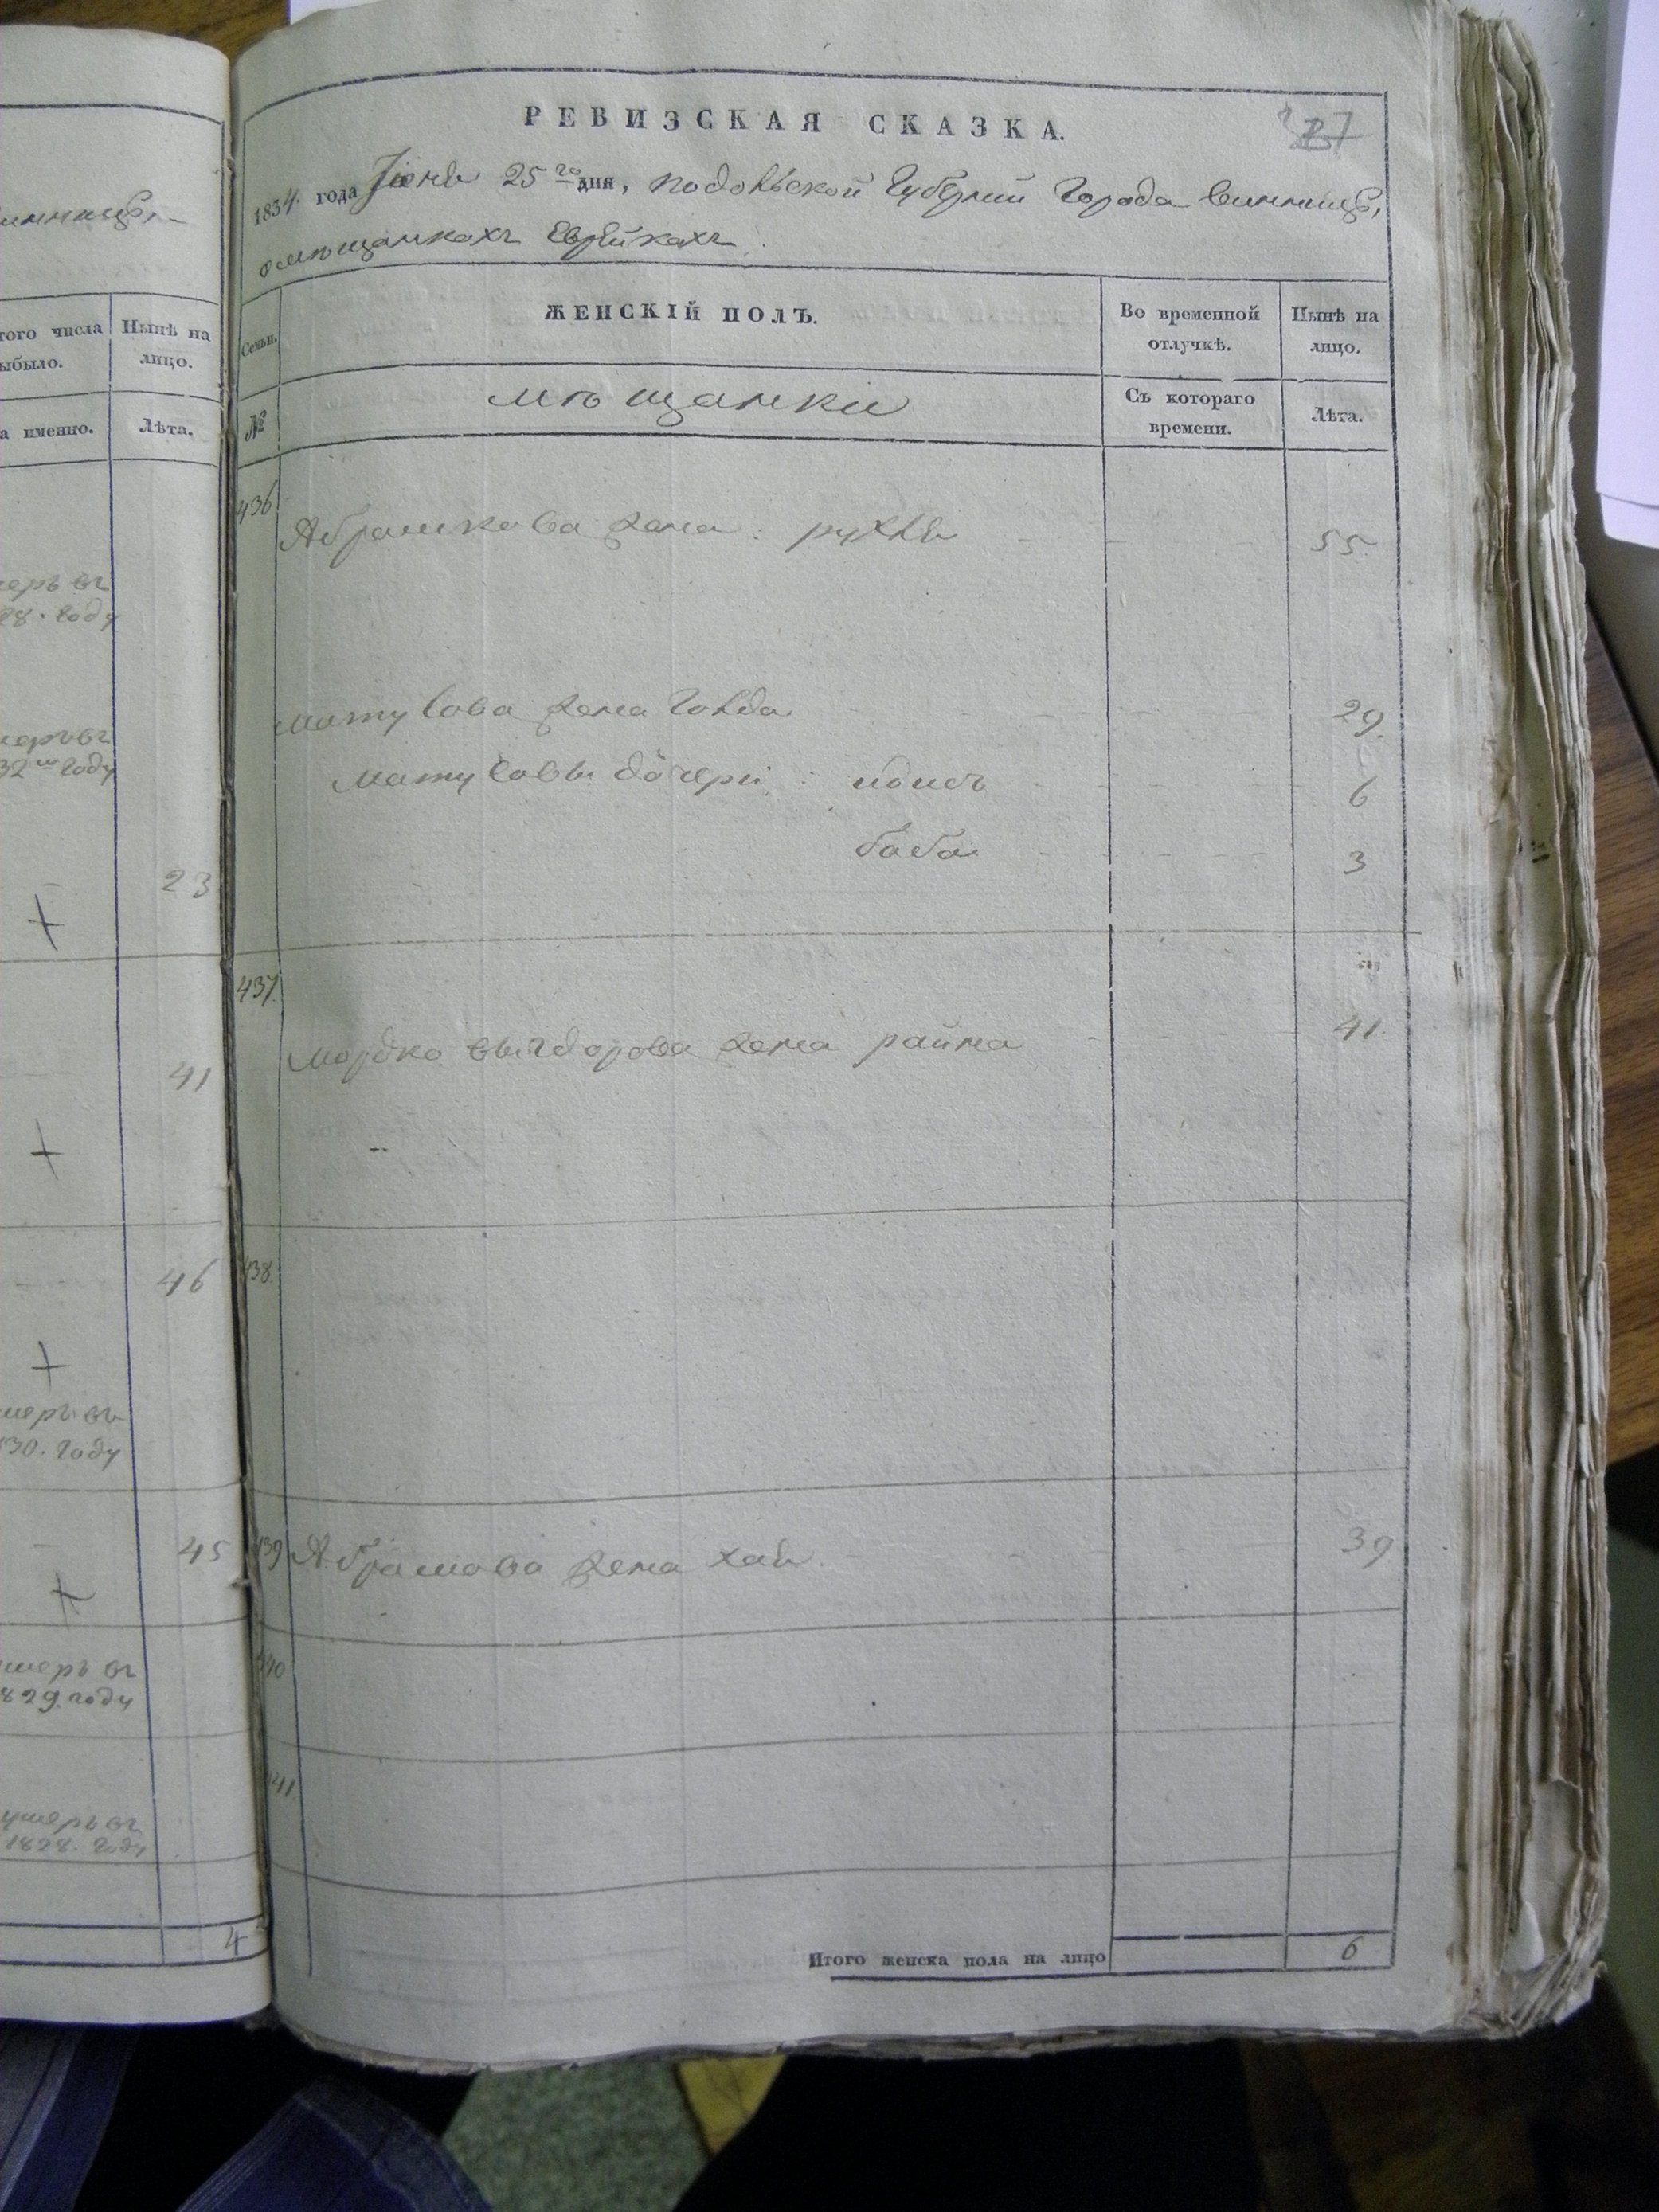 иннице,
того числа
ыбыло.
Нынѣ на
лицо.
а именно.
Лѣта.
меръ въ
28. году
меръ въ
32 году
23
+
41
+
46
+
меръ въ
30. году
45
+
умеръ въ
829. году
умеръ въ
1828. году
4
РЕВИЗСКАЯ СКАЗКА.
1834. года Іюня 25го дня, Подольской Губерніи Города Винницы,
о мѣщанкахъ Еврейкахъ.
Семьи.
ЖЕНСКІЙ ПОЛЪ.
Во временной
отлучкѣ.
Нынѣ на
лицо.
№
мѣщанки
Съ котораго
времени.
Лѣта.
436
Абрамкова жена: рухля 55.
Матусова жена Голда 29.
Матусовы дочери: 6
баба 3
437.
Мордко Выгдорова жена райна 41
438.
439 Абрамова жена хая. 39
440
441.
Итого женска пола на лицо 6